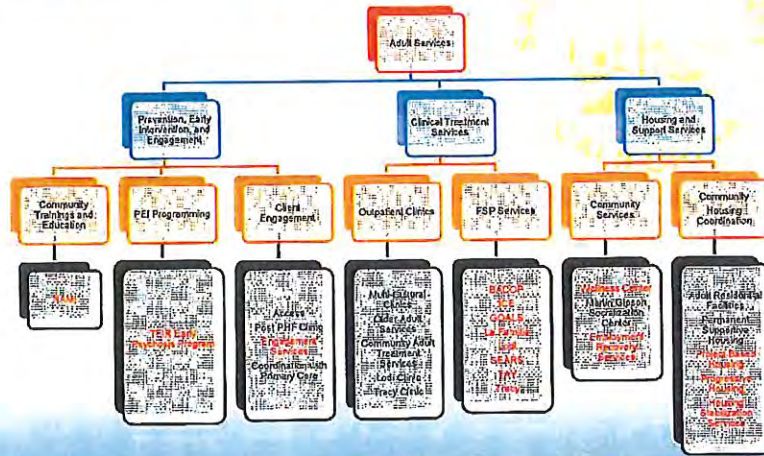 Adult Services
Prevention, Early
Intervention, and
Engagement
Clinical Treatment
Services
Housing and
Support Services
Community
Trainings and
Education
PEI Programming
Client
Engagement
Outpatient Clinics
FSP Services
Community
Services
Community
Housing
Coordination
NAMI
TEIR Early
Psychosis Program
Access
Post PHF Clinic
Engagement
Services
Coordination with
Primary Care
Multicultural
Clinics
Older Adult
Services
Community Adult
Treatment
Services
Lodi Clinic
Tracy Clinic
BACOP
ICE
GOALS
La Familia
Lodi
SEARS
TAY
Tracy
Wellness Center
Martin Gipson
Socialization
Center
Employment
Recovery
Services
Adult Residential
Facilities
Permanent
Supportive
Housing
Project Based
Housing
Progressive
Housing
Housing
Stabilization
Services